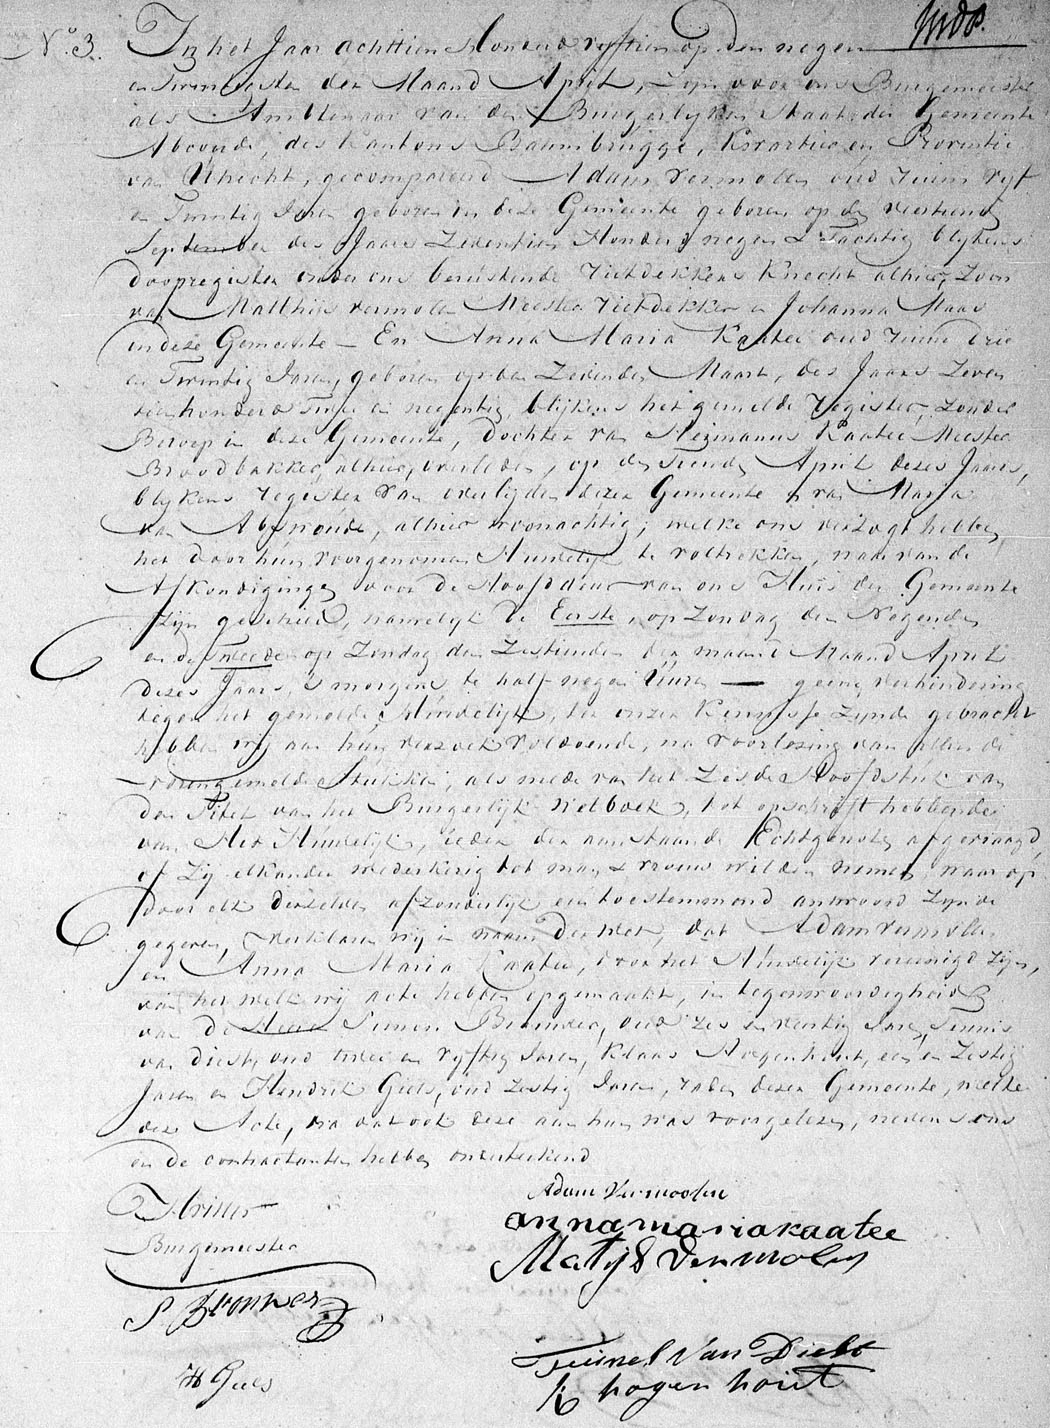 No. 3. In het Jaar achttien Honderd vyftien op den negen
en Twintigsten der Maand April, Zijn voor ons Burgemeester
als Ambtenaar van den Burgerlyken Staat der Gemeente
Abcoude, des Kantons Baambrugge, Kwartier en Provintie
van Utrecht, gecompareerd Adam Vermolen oud ruim vyf
en Twintig Jaren geboren in deze Gemeente geboren op den veertiend
September des Jaars Zeventien Honderd negen & Tachtig blykens
Doopregister onder ons berustende Rietdekkers Knecht alhier, Zoon
van Matthijs Vermolen Meester Rietdekker en Johanna Maas
in deze Gemeente — En Anna Maria Kaatee oud ruim drie
en Twintig Jaren, geboren op den Zevenden Maart, des Jaars Zeven
tien honderd Twee en negentig, blijkens het gemelde register, zonder
Beroep in deze Gemeente, Dochter van Hermanus Kaatee Meester
Broodbakker, alhier, overleden, op den Tiende April dezes Jaars,
blykens register van overlyden dezer Gemeente en van Maria
van Abcoude, alhier woonachtig; welke ons verzogt hebben
het door hun voorgenomen Huwelijk te voltrekken, waar van de
Afkondigingen voor de Hoofddeur van ons Huis der Gemeente
Zijn geschied, namelijk de Eerste, op Zondag den Negenden
en de Tweede op Zondag den Zestienden der maand Maand April
dezes Jaars, 's morgens te half negen Uuren — geene verhindering
tegen het gemelde Huwelijk, ter onzer Kennisse Zynde gebracht
hebben wij aan hun verzoek voldoende, na voorlezing van allen de
voorengemelde Stukken, als mede van het Zesde Hoofdstuk van
den Titel van het Burgerlijk Wetboek, tot opschrift hebbende
van Het Huwelijk, ieder der aanstaande Echtgenoten afgevraagd,
of Zij elkander wederkerig tot man & vrouw wilden nemen, waar op
door elk derzelven afzonderlijk een toestemmend antwoord Zynde
gegeven, verklaren wij in naam der Wet, dat Adam Vermolen
en Anna Maria Kaatee, door het Huwelijk vereenigd Zijn,
van het welk wij acte hebben opgemaakt, in tegenwoordigheid
van de Heer Simon Brouwer, oud zes en veertig Jaren, Teunis
van Diest, oud twee en vyftig Jaren, Klaas Hogenhout, een en Zestig
Jaren en Hendrik Giels, oud Zestig Jaren, dezer Gemeente, welke
deze Acte, na dat ook deze aan hun was voorgelezen, nevens ons
en de contractanten hebben onderteekend
Burgemeester
Adam Vermoolen
anna maria kaatee
Matijs Vermolen
S Brouwer
Teunes Van Diest
K hogen hout
H Giels